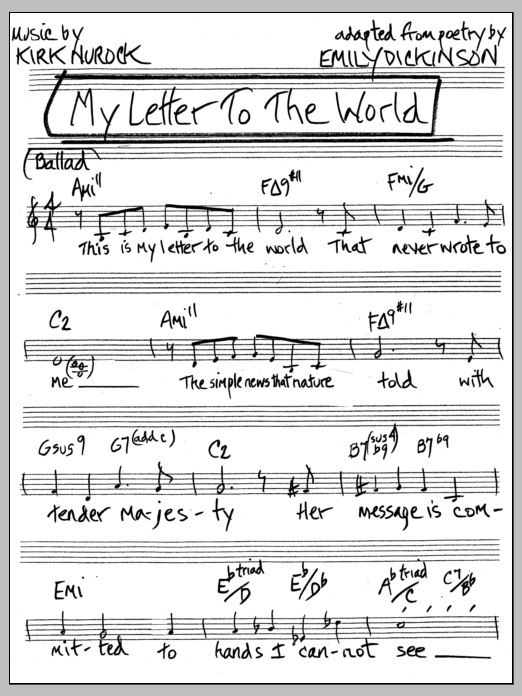 Music by
KIRK NUROCK
adapted from poetry by
EMILY DICKINSON
My Letter To The World
(Ballad)
Ami11 F∆9#11 Fmi/G
This is my letter to the world That never wrote to
C2 Ami11 F∆9#11
me ____ The simple news that nature told with
Gsus9 G7(add c) C2 B7(sus4 b9) B7b9
tender Ma-jes-ty Her message is com-
Emi Eb triad/D Eb/Db Ab triad/C C7/Bb
mit-ted to hands I can-not see ____